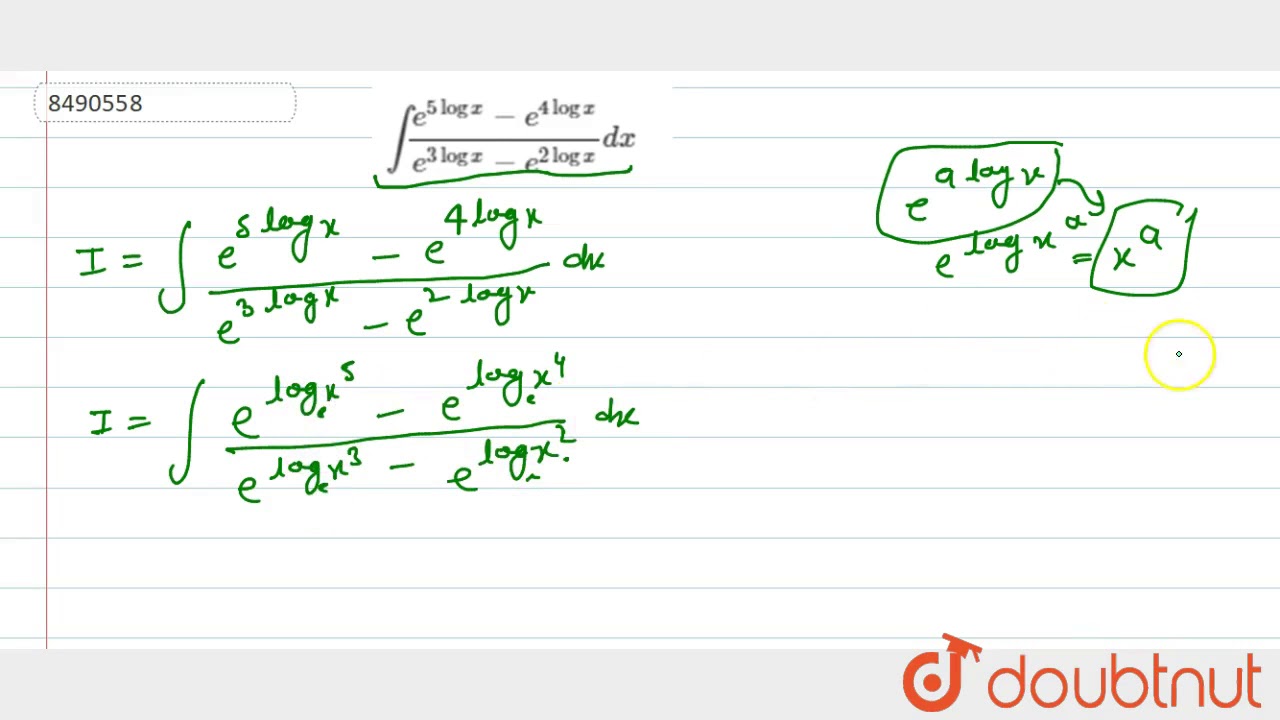 8490558
∫ (e^{5 log x} − e^{4 log x}) / (e^{3 log x} − e^{2 log x}) dx
I = ∫ (e^{5 log x} − e^{4 log x}) / (e^{3 log x} − e^{2 log x}) dx
I = ∫ (e^{log_e x^5} − e^{log_e x^4}) / (e^{log_e x^3} − e^{log_e x^2}) dx
e^{a log x}
e^{log x^a} = x^a
doubtnut